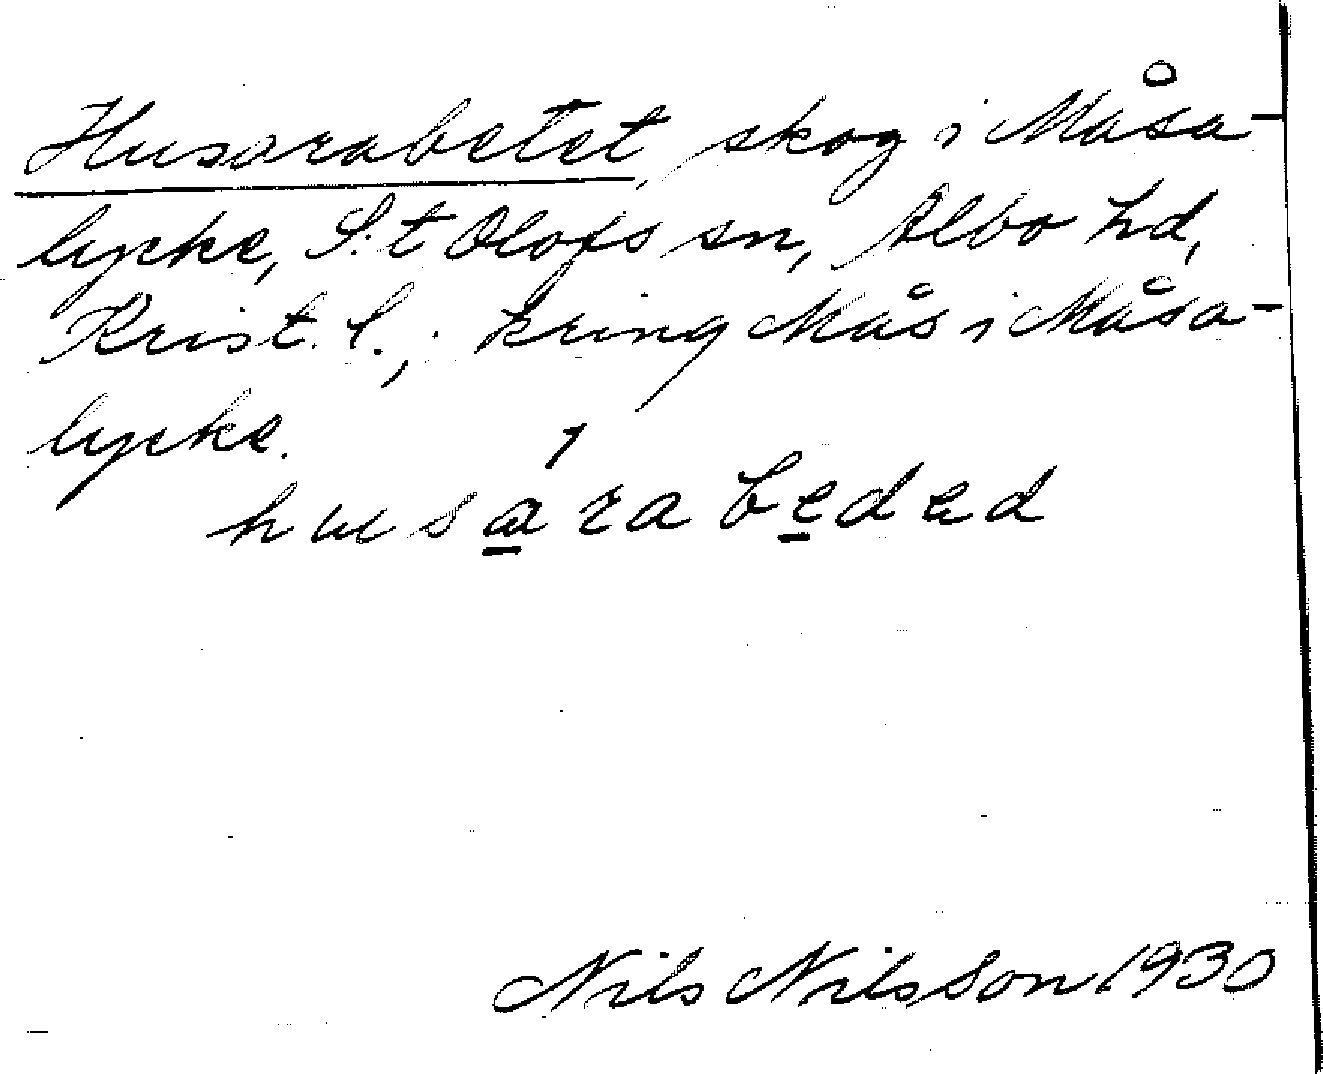 Husarabetet, skog i Måsa-
lycke, S:t Olofs sn, Albo hd,
Krist. l., kring Mås i Måsa-
lycke.
husa̱ʹrabe̱dəd
Nils Nilsson 1930